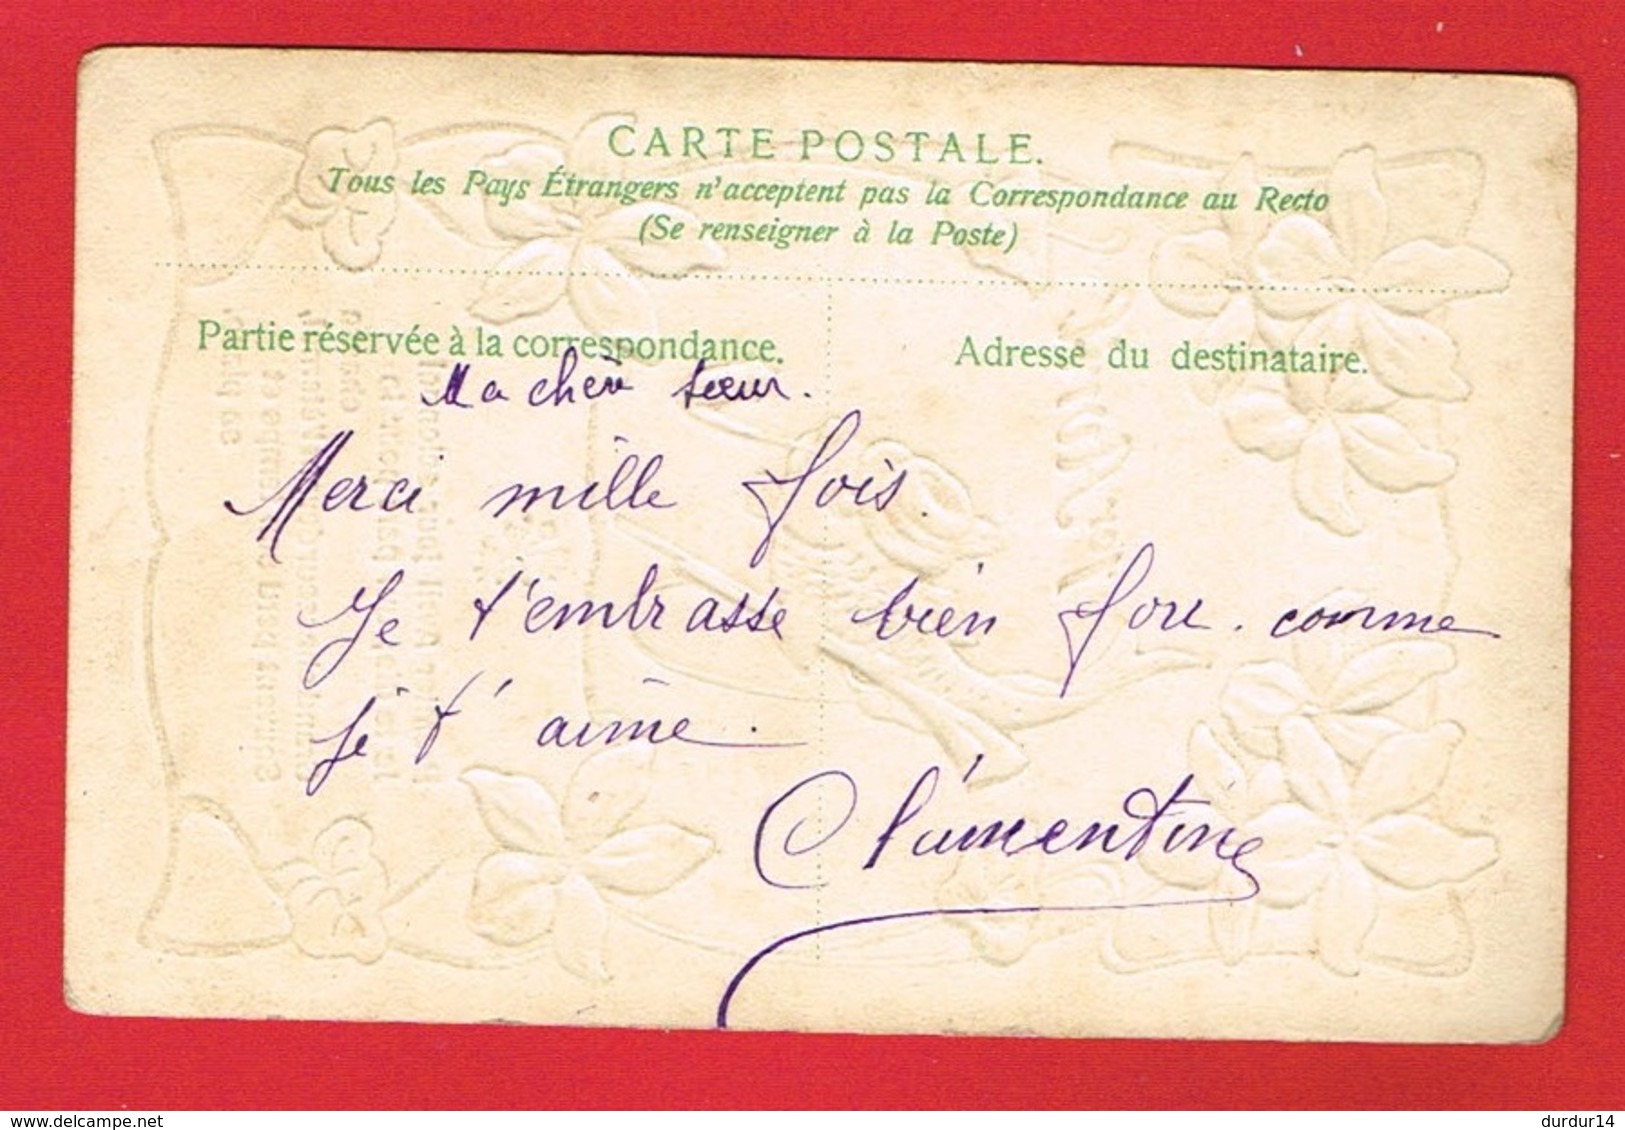 CARTE POSTALE.
Tous les Pays Étrangers n'acceptent pas la Correspondance au Recto
(Se renseigner à la Poste)
Partie réservée à la correspondance.
Adresse du destinataire.
Ma chère sœur.
Merci mille fois.
Je t'embrasse bien fort. comme
je t'aime.
Clémentine
durdur14